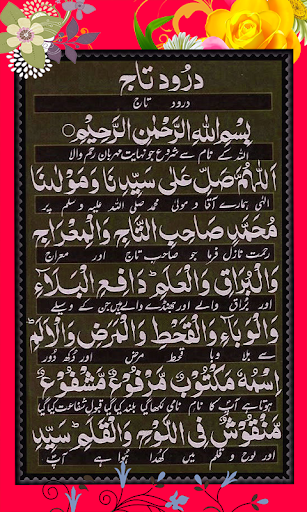 درُود تاج
درود تاج
بِسْمِ اللهِ الرَّحْمٰنِ الرَّحِيْمِ
اللہ کے نام سے شروع جو نہایت مہربان رحم والا
اَللّٰهُمَّ صَلِّ عَلٰى سَيِّدِنَا وَمَوْلٰىنَا
الٰہی ہمارے آقا و مولیٰ محمد صلی اللہ علیہ وسلم پر
مُحَمَّدٍ صَاحِبِ التَّاجِ وَالْمِعْرَاجِ
رحمت نازل فرما جو صاحب تاج اور معراج
وَالْبُرَاقِ وَالْعَلَمِ ؕ دَافِعِ الْبَلَآءِ
اور بُراق والے اور جھنڈے والے ہیں جن کے وسیلے
وَالْوَبَآءِ وَالْقَحْطِ وَالْمَرَضِ وَالْاَلَمِ ؕ
سے بلا وبا قحط مرض اور دُکھ دُور
اِسْمُهٗ مَكْتُوْبٌ مَّرْفُوْعٌ مَّشْفُوْعٌ
ہوتا ہے آپ کا نام نامی لکھا گیا بلند کیا گیا قبول شفاعت کیا گیا
مَّنْقُوْشٌ فِى اللَّوْحِ وَالْقَلَمِ ؕ سَيِّدِ
اور لوح و قلم میں کھدا ہُوا ہے آپ